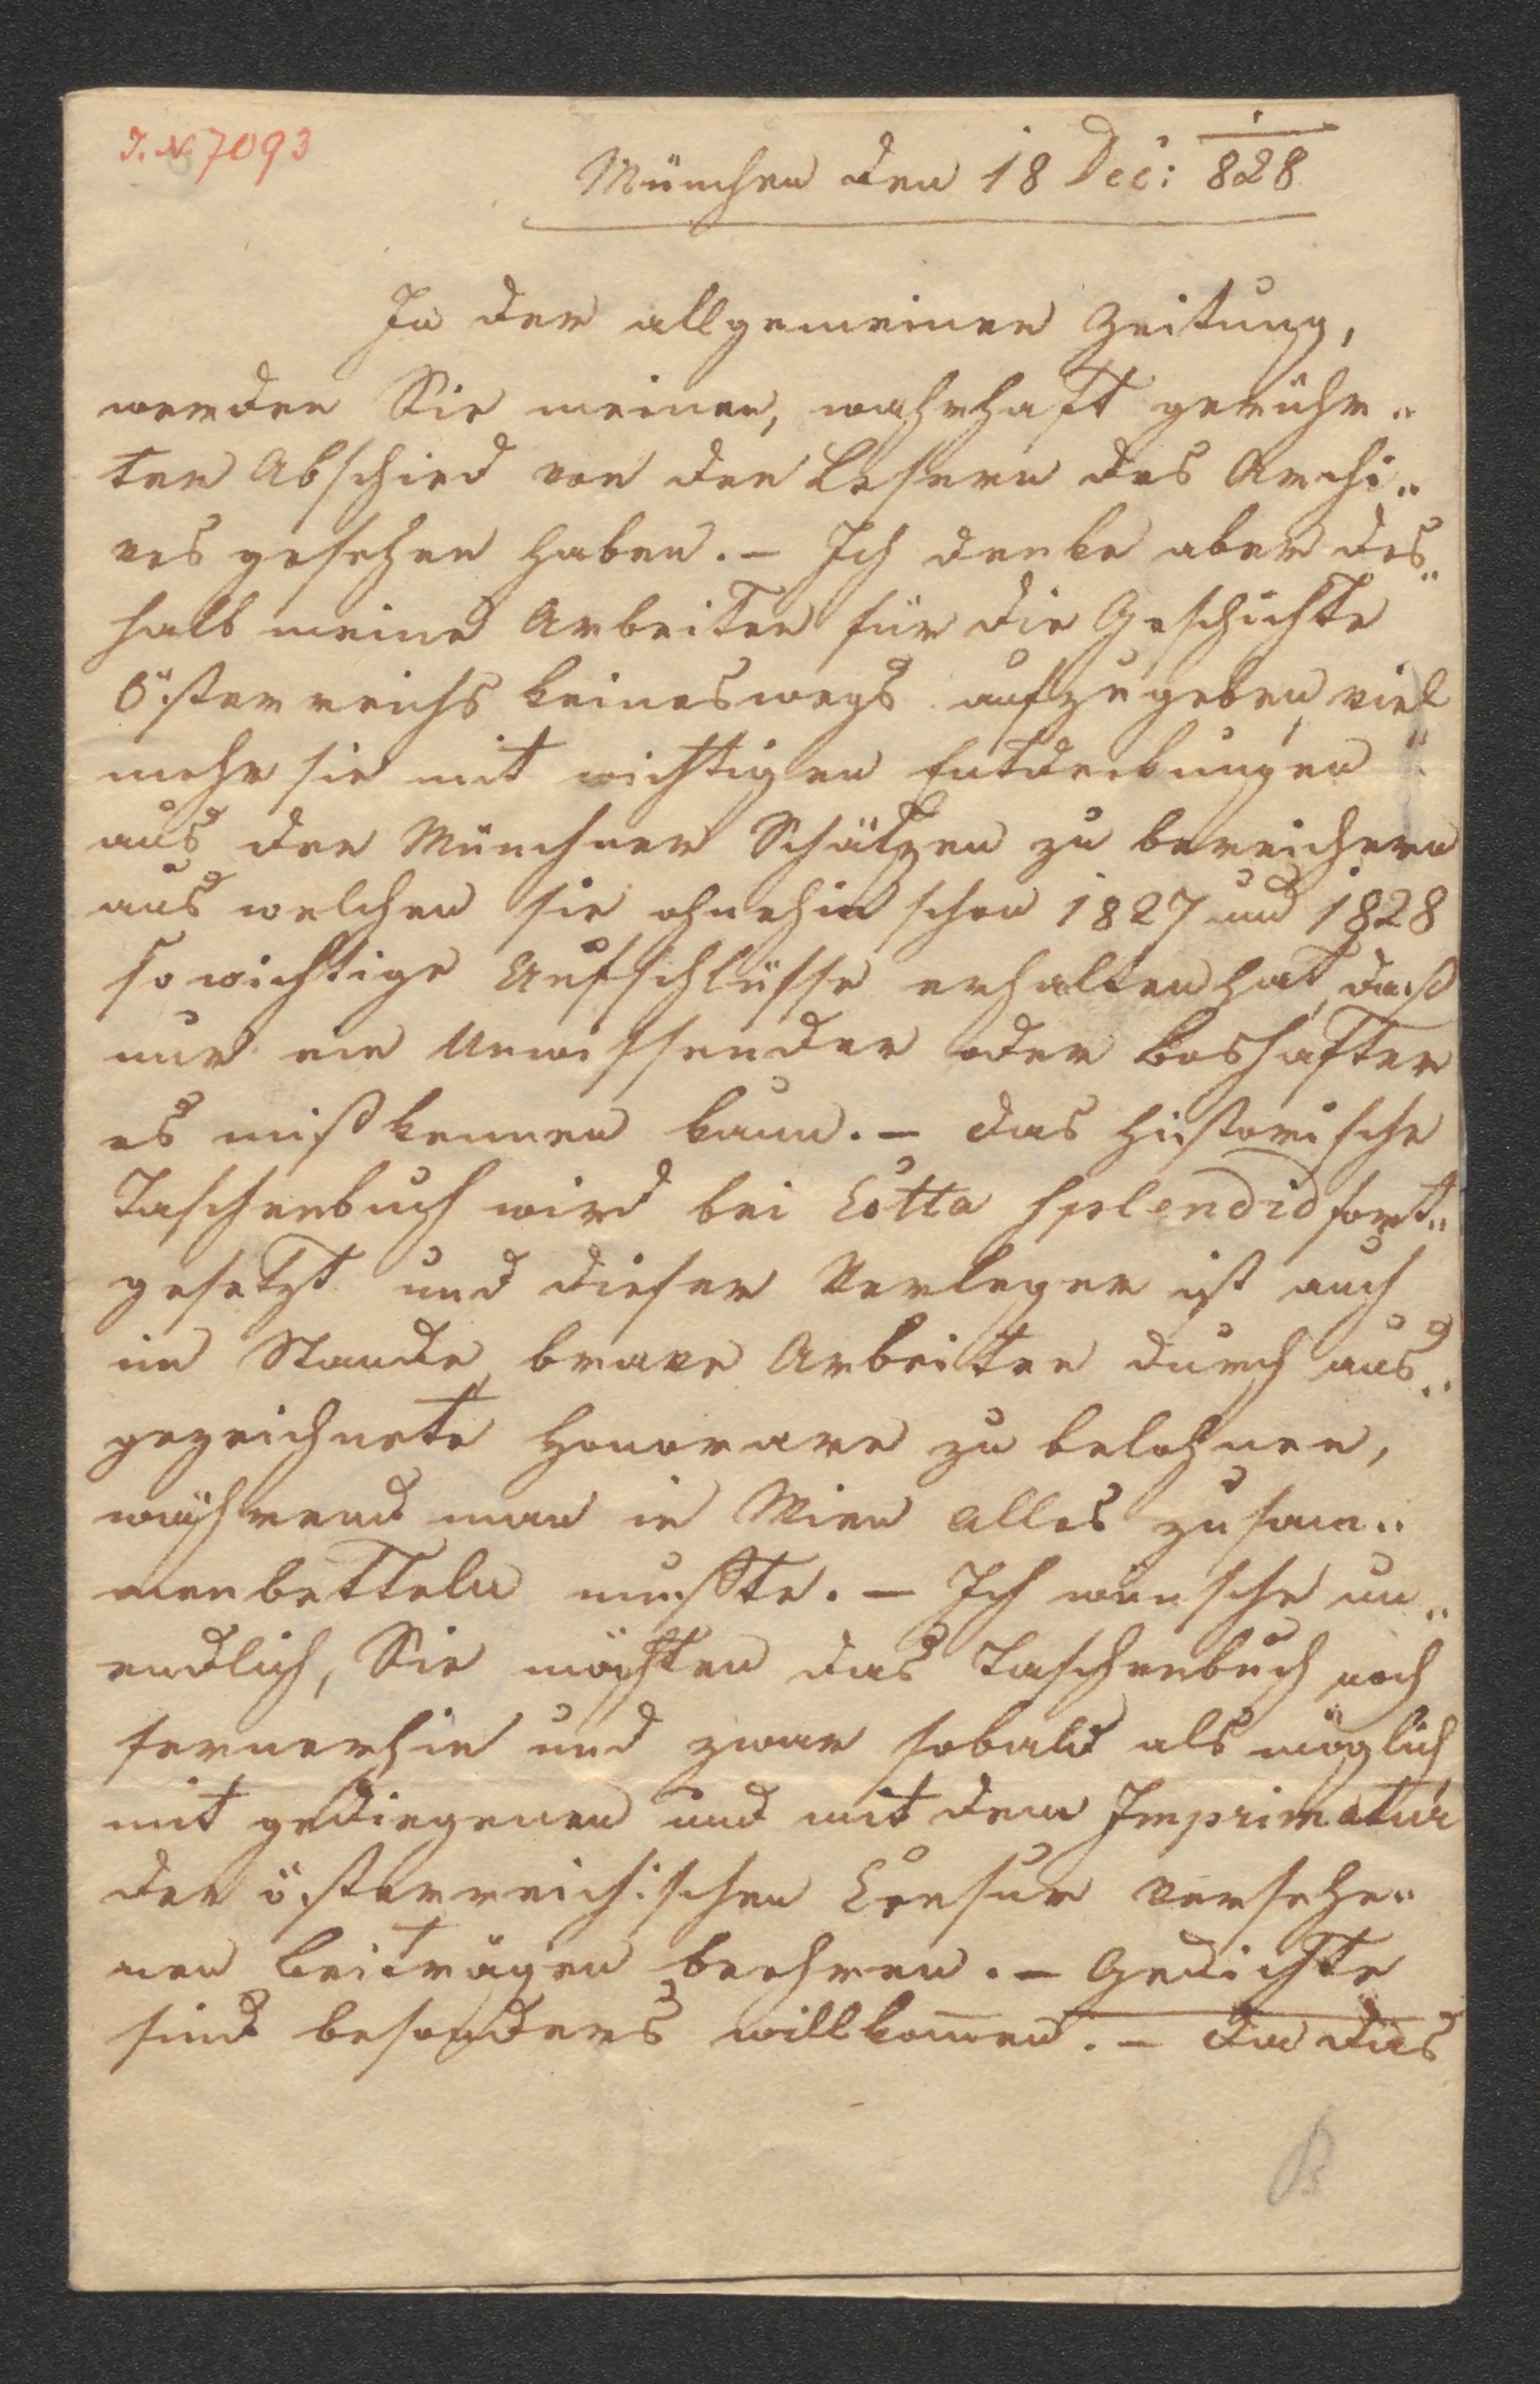 I. N. 7093
München den 18 Dec: 828
In der allgemeinen Zeitung,
werden Sie meinen, wahrhaft gerühr„
ten Abschied von den Lesern des Archi„
ves gesehen haben. – Ich denke aber des„
halb meine Arbeiten für die Geschichte
Österreichs keineswegs aufzugeben, viel„
mehr sie mit wichtigen Entdeckungen
aus den Münchner Schätzen zu bereichern
aus welchen sie ohnehin schon 1827 und 1828
so wichtige Aufschlüsse erhalten hat, daß
nur ein Unwissender oder Boshafter
es mißkennen kann. – Das historische
Taschenbuch wird bei Cotta splendid fort„
gesetzt und dieser Verleger ist auch
im Stande, brave Arbeiten durch aus„
gezeichnete Honorare zu belohnen,
während man in Wien alles zusam„
menbetteln mußte. – Ich wünsche un„
endlich, Sie möchten das Taschenbuch noch
fernerhin und zwar sobald als möglich
mit gediegenen und mit dem Imprimatur
der österreichischen Censur versehe„
nen Beiträgen beehren. – Gedichte
sind besonders willkommen. – Da das
B